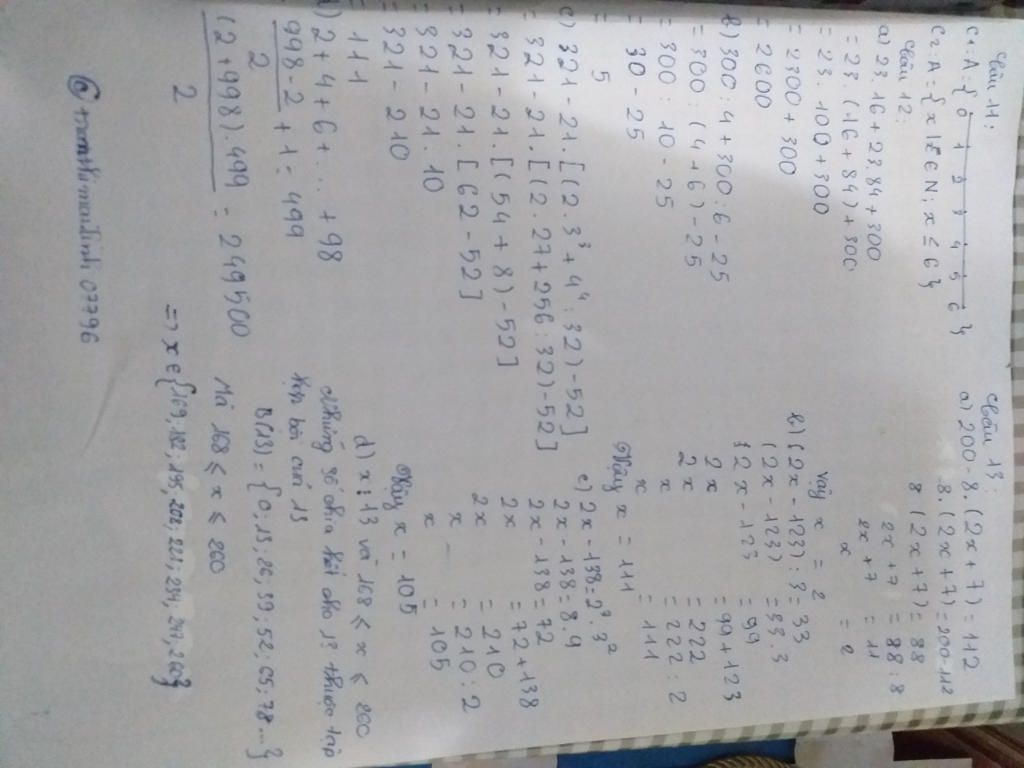 Câu 11:
C1: A = { 0 1 2 3 4 5 6 }
C2: A = { x | x ∈ N ; x ≤ 6 }
Câu 12:
a) 23.16 + 23.84 + 300
= 23.(16 + 84) + 300
= 23.100 + 300
= 2300 + 300
= 2600
b) 300 : 4 + 300 : 6 - 25
= 300 : (4 + 6) - 25
= 300 : 10 - 25
= 30 - 25
= 5
c) 321 - 21.[(2.3³ + 4⁴ : 32) - 52]
= 321 - 21.[(2.27 + 256 : 32) - 52]
= 321 - 21.[(54 + 8) - 52]
= 321 - 21.[62 - 52]
= 321 - 21.10
= 321 - 210
= 111
d) 2 + 4 + 6 + ... + 98
998 - 2 / 2 + 1 = 499
(2 + 998).499 / 2 = 249500
Câu 13:
a) 200 - 8.(2x + 7) = 112
8.(2x + 7) = 200 - 112
8(2x + 7) = 88
2x + 7 = 88 : 8
2x + 7 = 11
x = 2
Vậy x = 2
b) (2x - 123) : 3 = 33
(2x - 123) = 33.3
2x - 123 = 99
2x = 99 + 123
2x = 222
x = 222 : 2
x = 111
Vậy x = 111
c) 2x - 138 = 2³.3²
2x - 138 = 8.9
2x - 138 = 72
2x = 72 + 138
2x = 210
x = 210 : 2
x = 105
Vậy x = 105
d) x ⋮ 13 và 168 ≤ x ≤ 260
Những số chia hết cho 13 thuộc tập
hợp bội của 13
B(13) = {0; 13; 26; 39; 52; 65; 78 ...}
Mà 168 ≤ x ≤ 260
=> x ∈ {169; 182; 195; 208; 221; 234; 247; 260}
@tranthimailinh07796